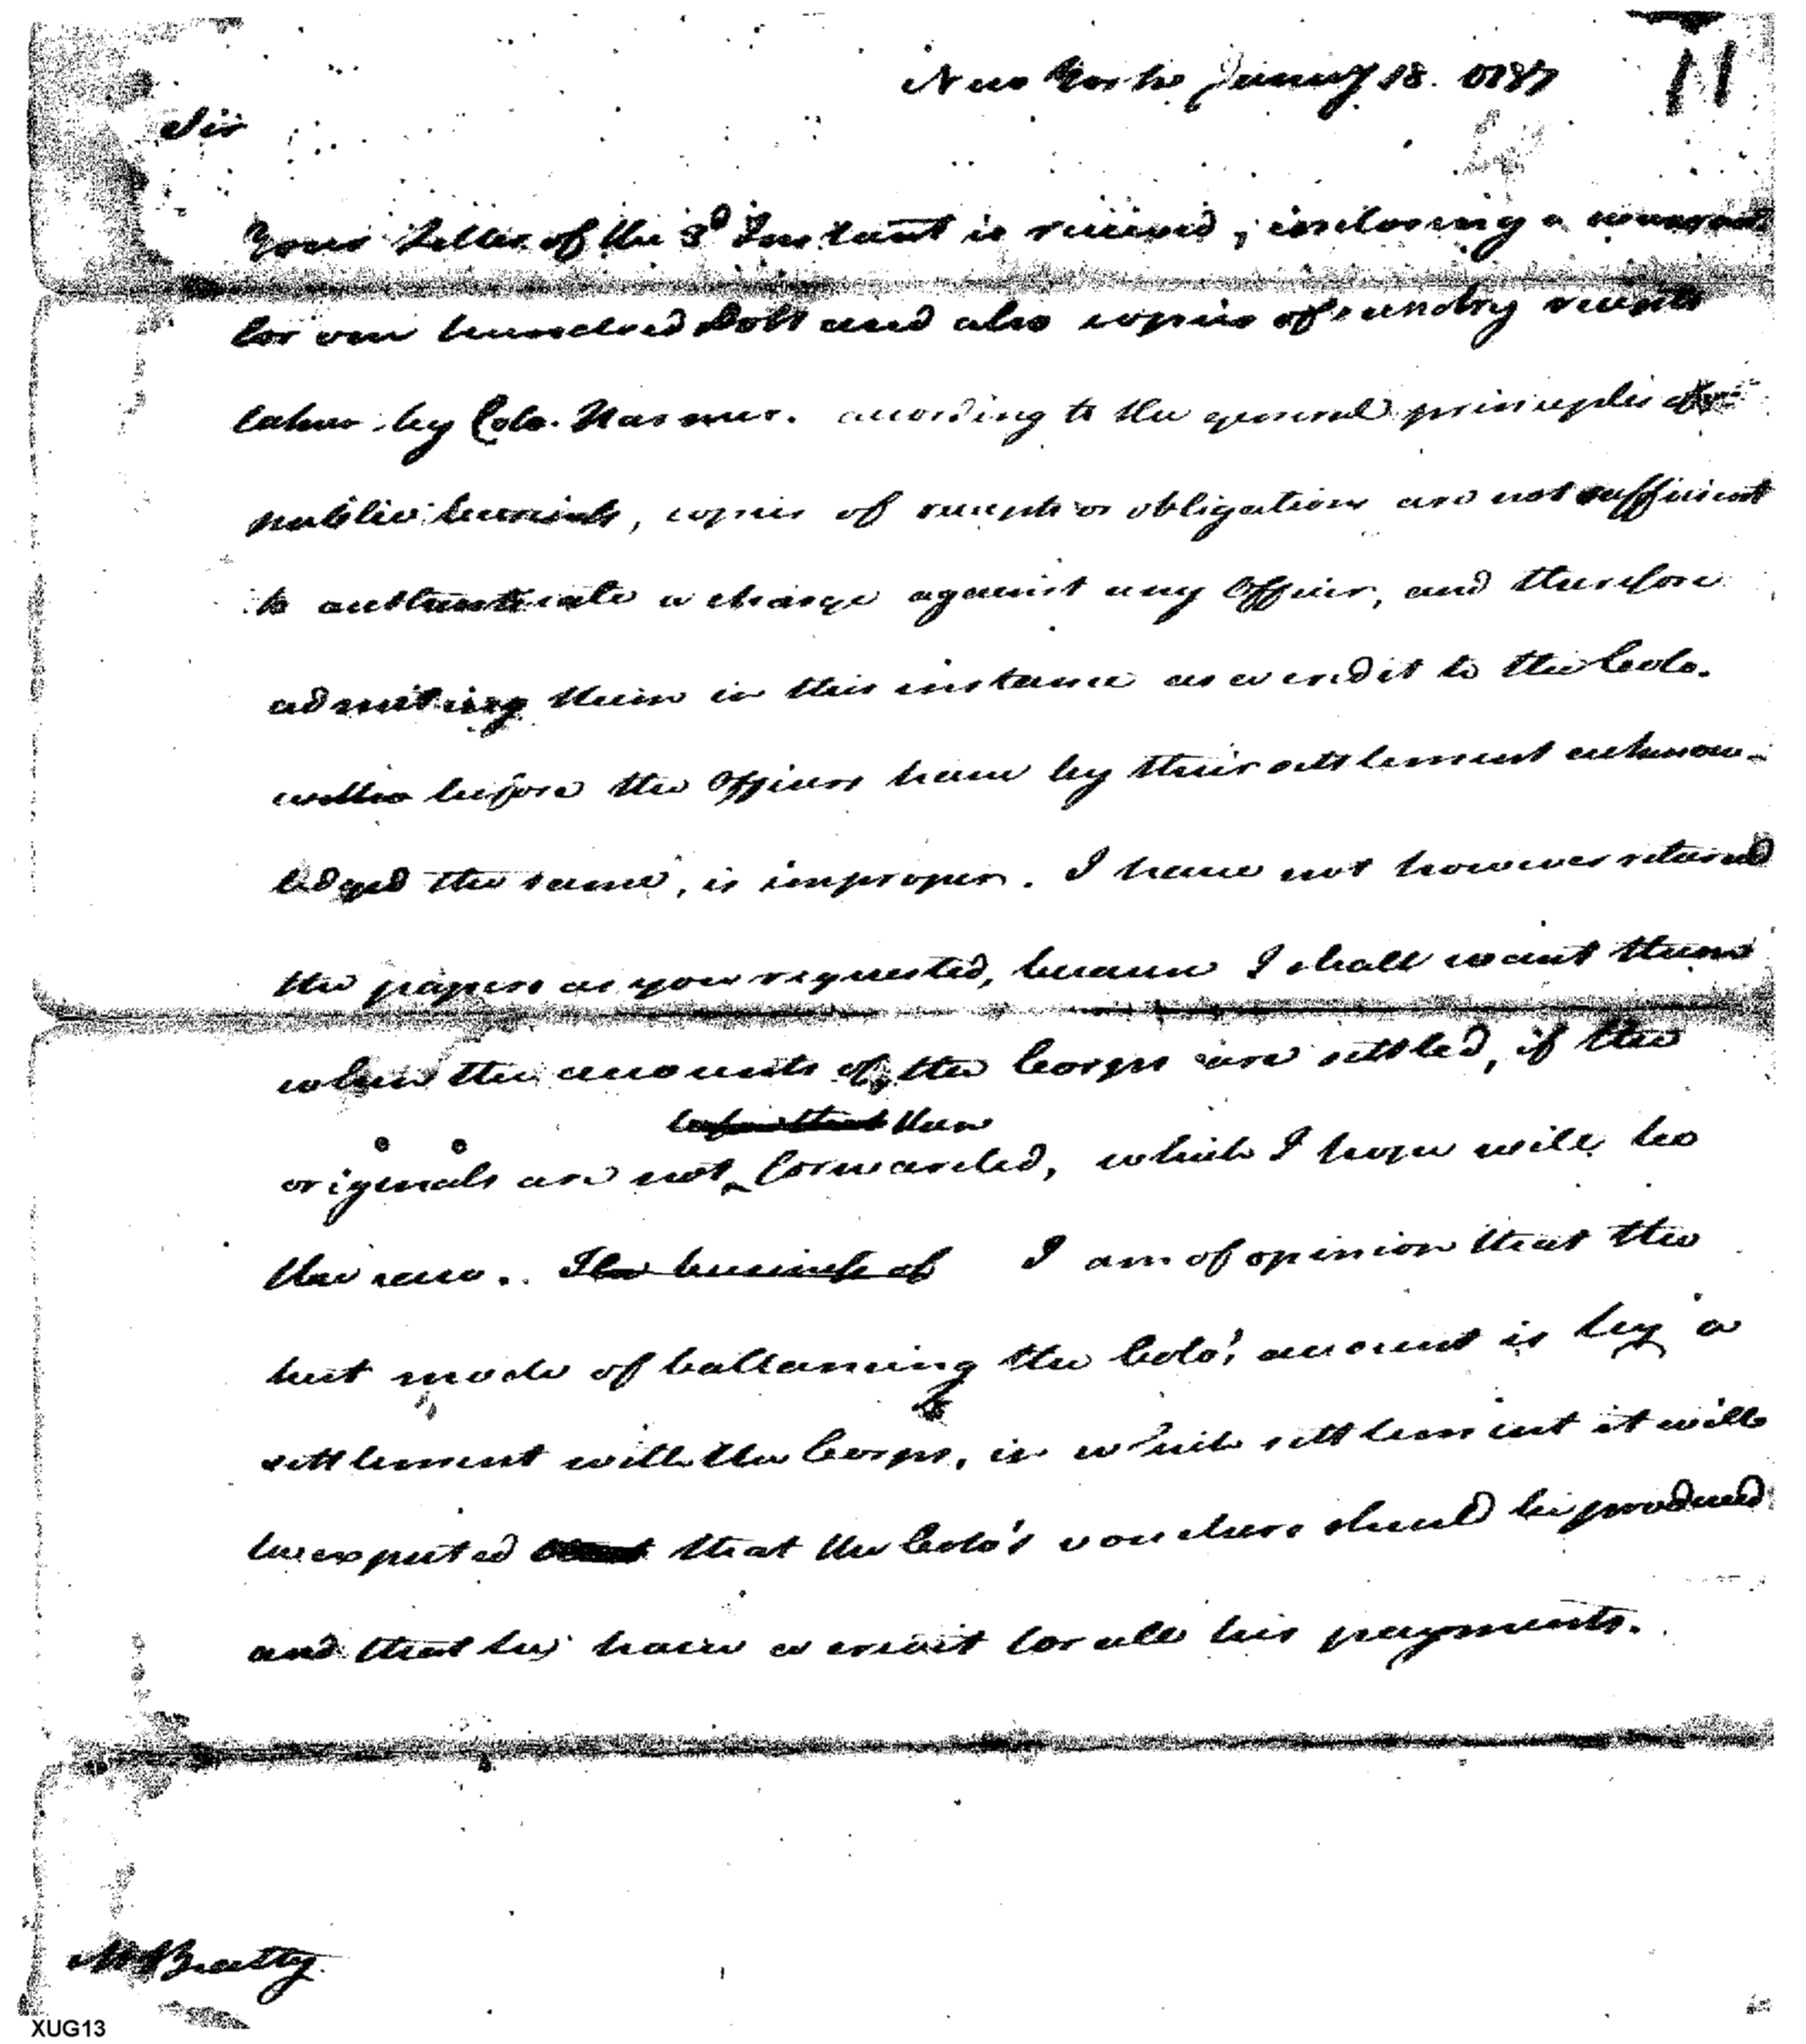 New York January 18. 1787
11
Sir
Your Letter of the 3d Instant is received, inclosing a warrant
for one hundred Dolls and also copies of sundry receipts
taken by Colo. Harmar. according to the general principles of
public business, copies of receipts or obligations are not sufficient
to authenticate a charge against any Officer, and therefore
admitting them in this instance as a credit to the Colo.
before the Officers have by their settlement acknow-
ledged the same, is improper. I have not however returned
the papers as you requested, because I shall want them
when the accounts of the Corps are settled, if the
then
originals are not forwarded, which I hope will be
the case. The business of I am of opinion that the
best mode of ballancing the Colo's account is by a
settlement with the Corps, in which settlement it will
be expected that the Colo's vouchers should be produced
and that he have a credit for all his payments.
Mr Beatty
XUG13